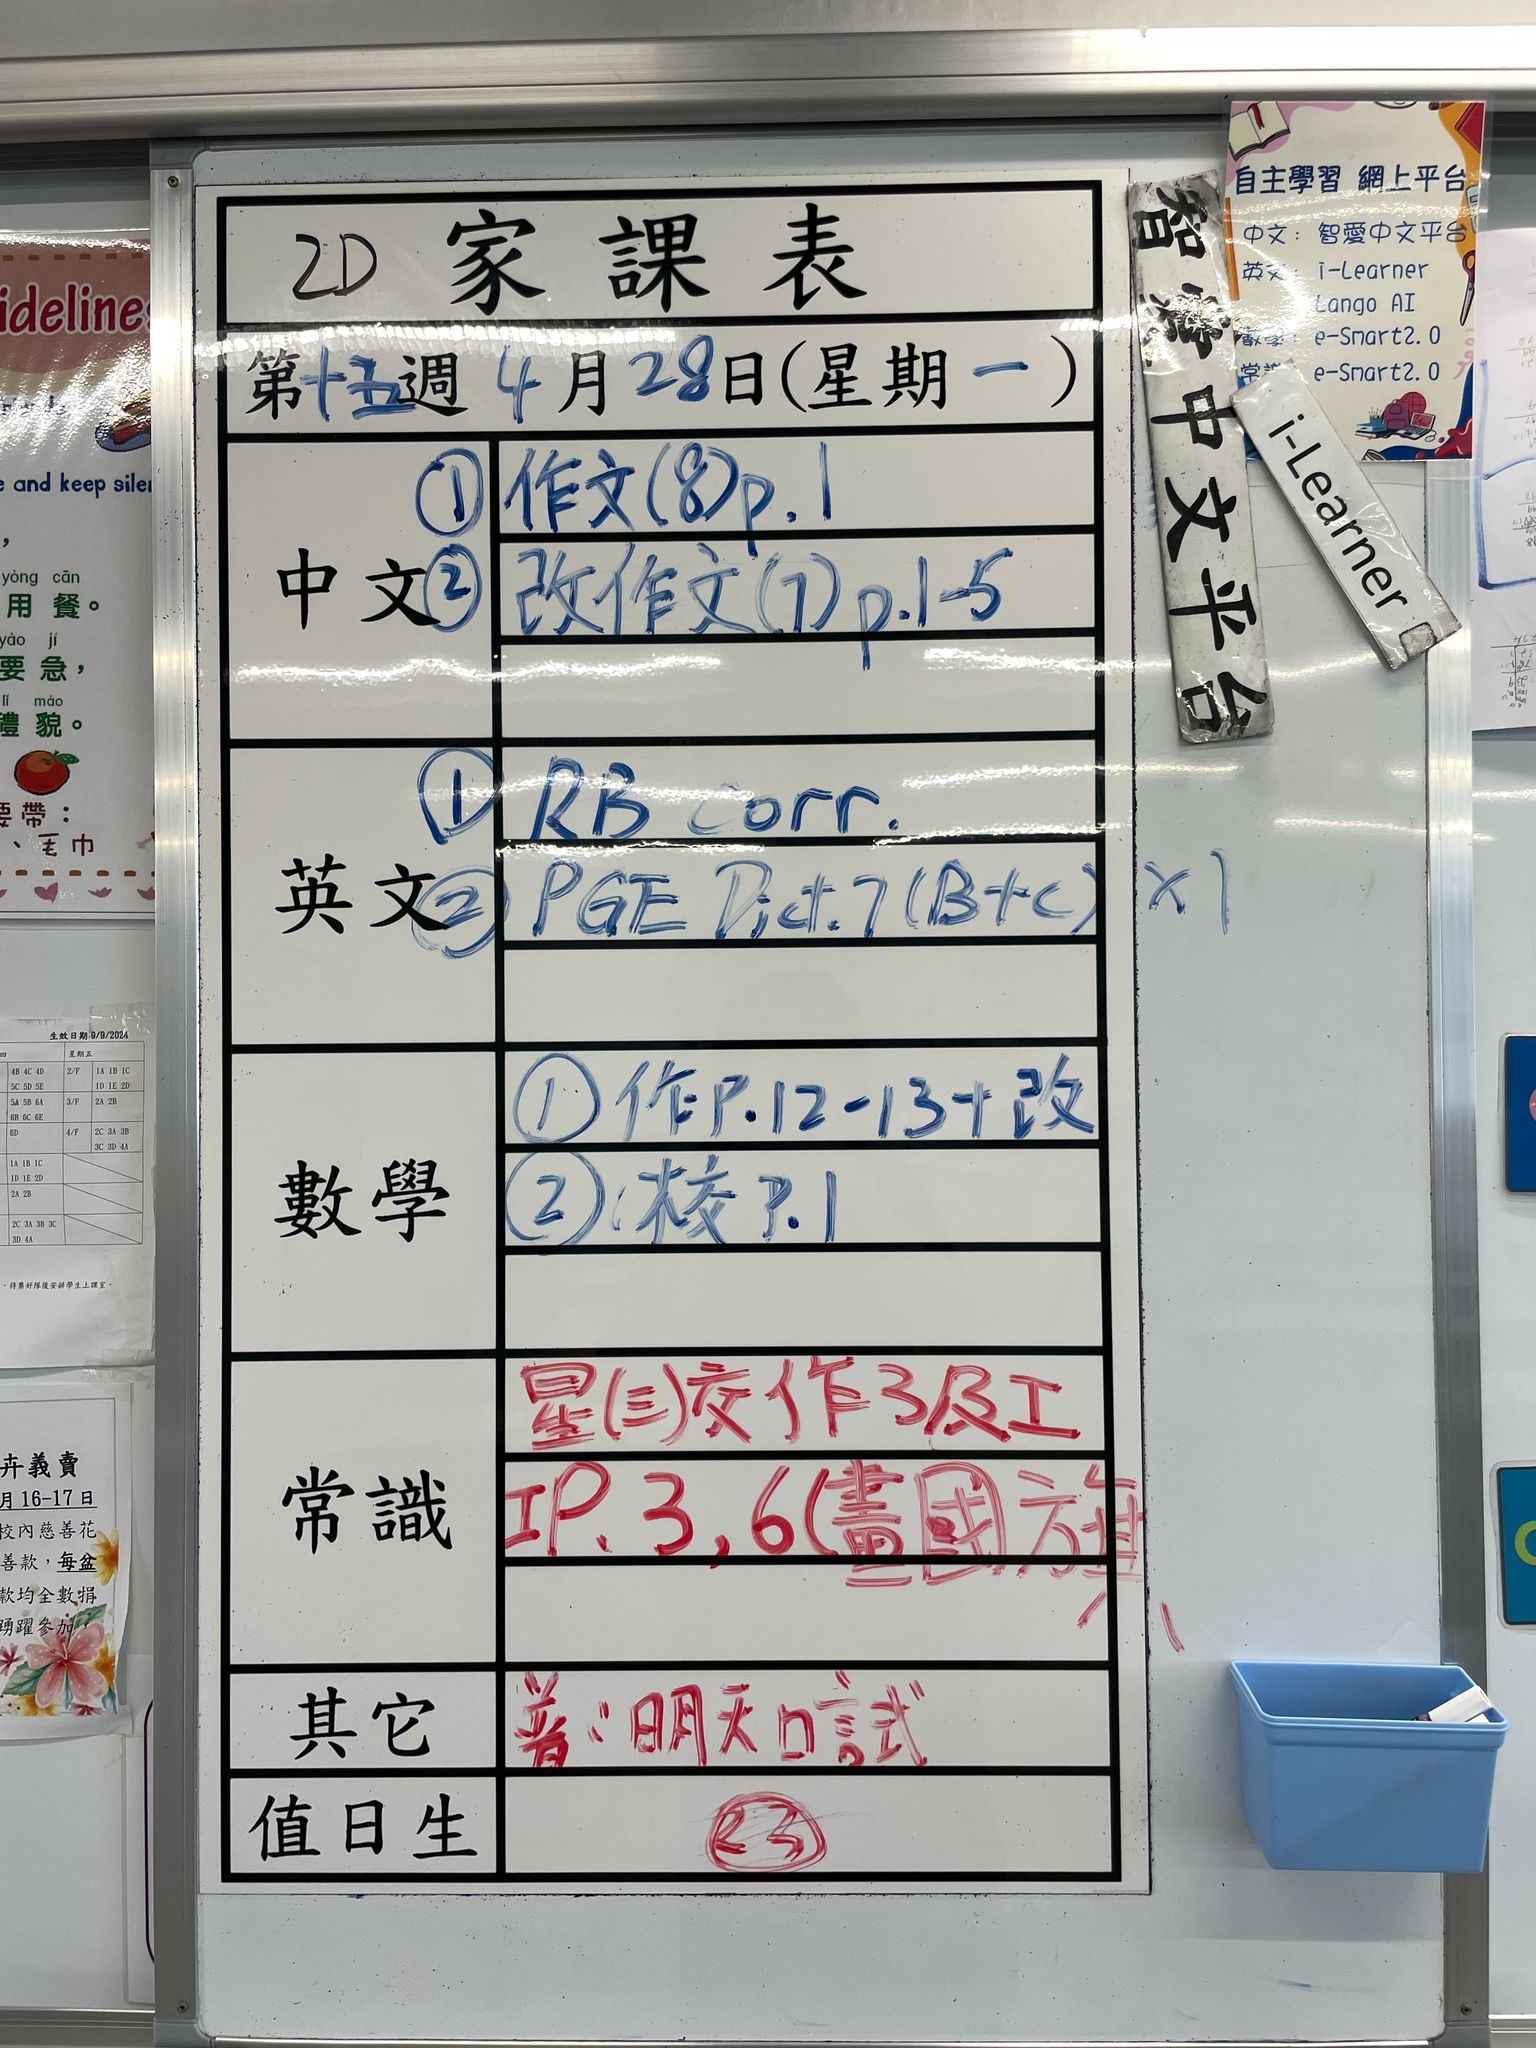 2D 家課表
第十五週 4月28日(星期一)
中文
① 作文(8)p.1
② 改作文(7)p.1-5
英文
① RB corr.
② PGE Dict.7(B+C) x1
數學
① 作P.12-13+改
② 校P.1
常識
星(三)交作3及工
工P.3,6(畫國旗)
其它
普:明天口試
值日生
23
智愛中文平台
i-Learner
自主學習 網上平台
中文: 智愛中文平台
英文: i-Learner
Lango AI
數學: e-Smart2.0
常識: e-Smart2.0
idelines
e and keep silen
yòng cān
用餐。
yào jí
要急,
lǐ mào
禮貌。
要帶:
、毛巾
生效日期 9/9/2024
四 星期五
4B 4C 4D 2/F 1A 1B 1C
5C 5D 5E 1D 1E 2D
5A 5B 6A 3/F 2A 2B
6B 6C 6E
6D 4/F 2C 3A 3B
3C 3D 4A
1A 1B 1C
1D 1E 2D
2A 2B
2C 3A 3B 3C
3D 4A
,待集好隊後安排學生上課室。
卉義賣
月16-17日
校內慈善花
善款,每盆
款均全數捐
踴躍參加,